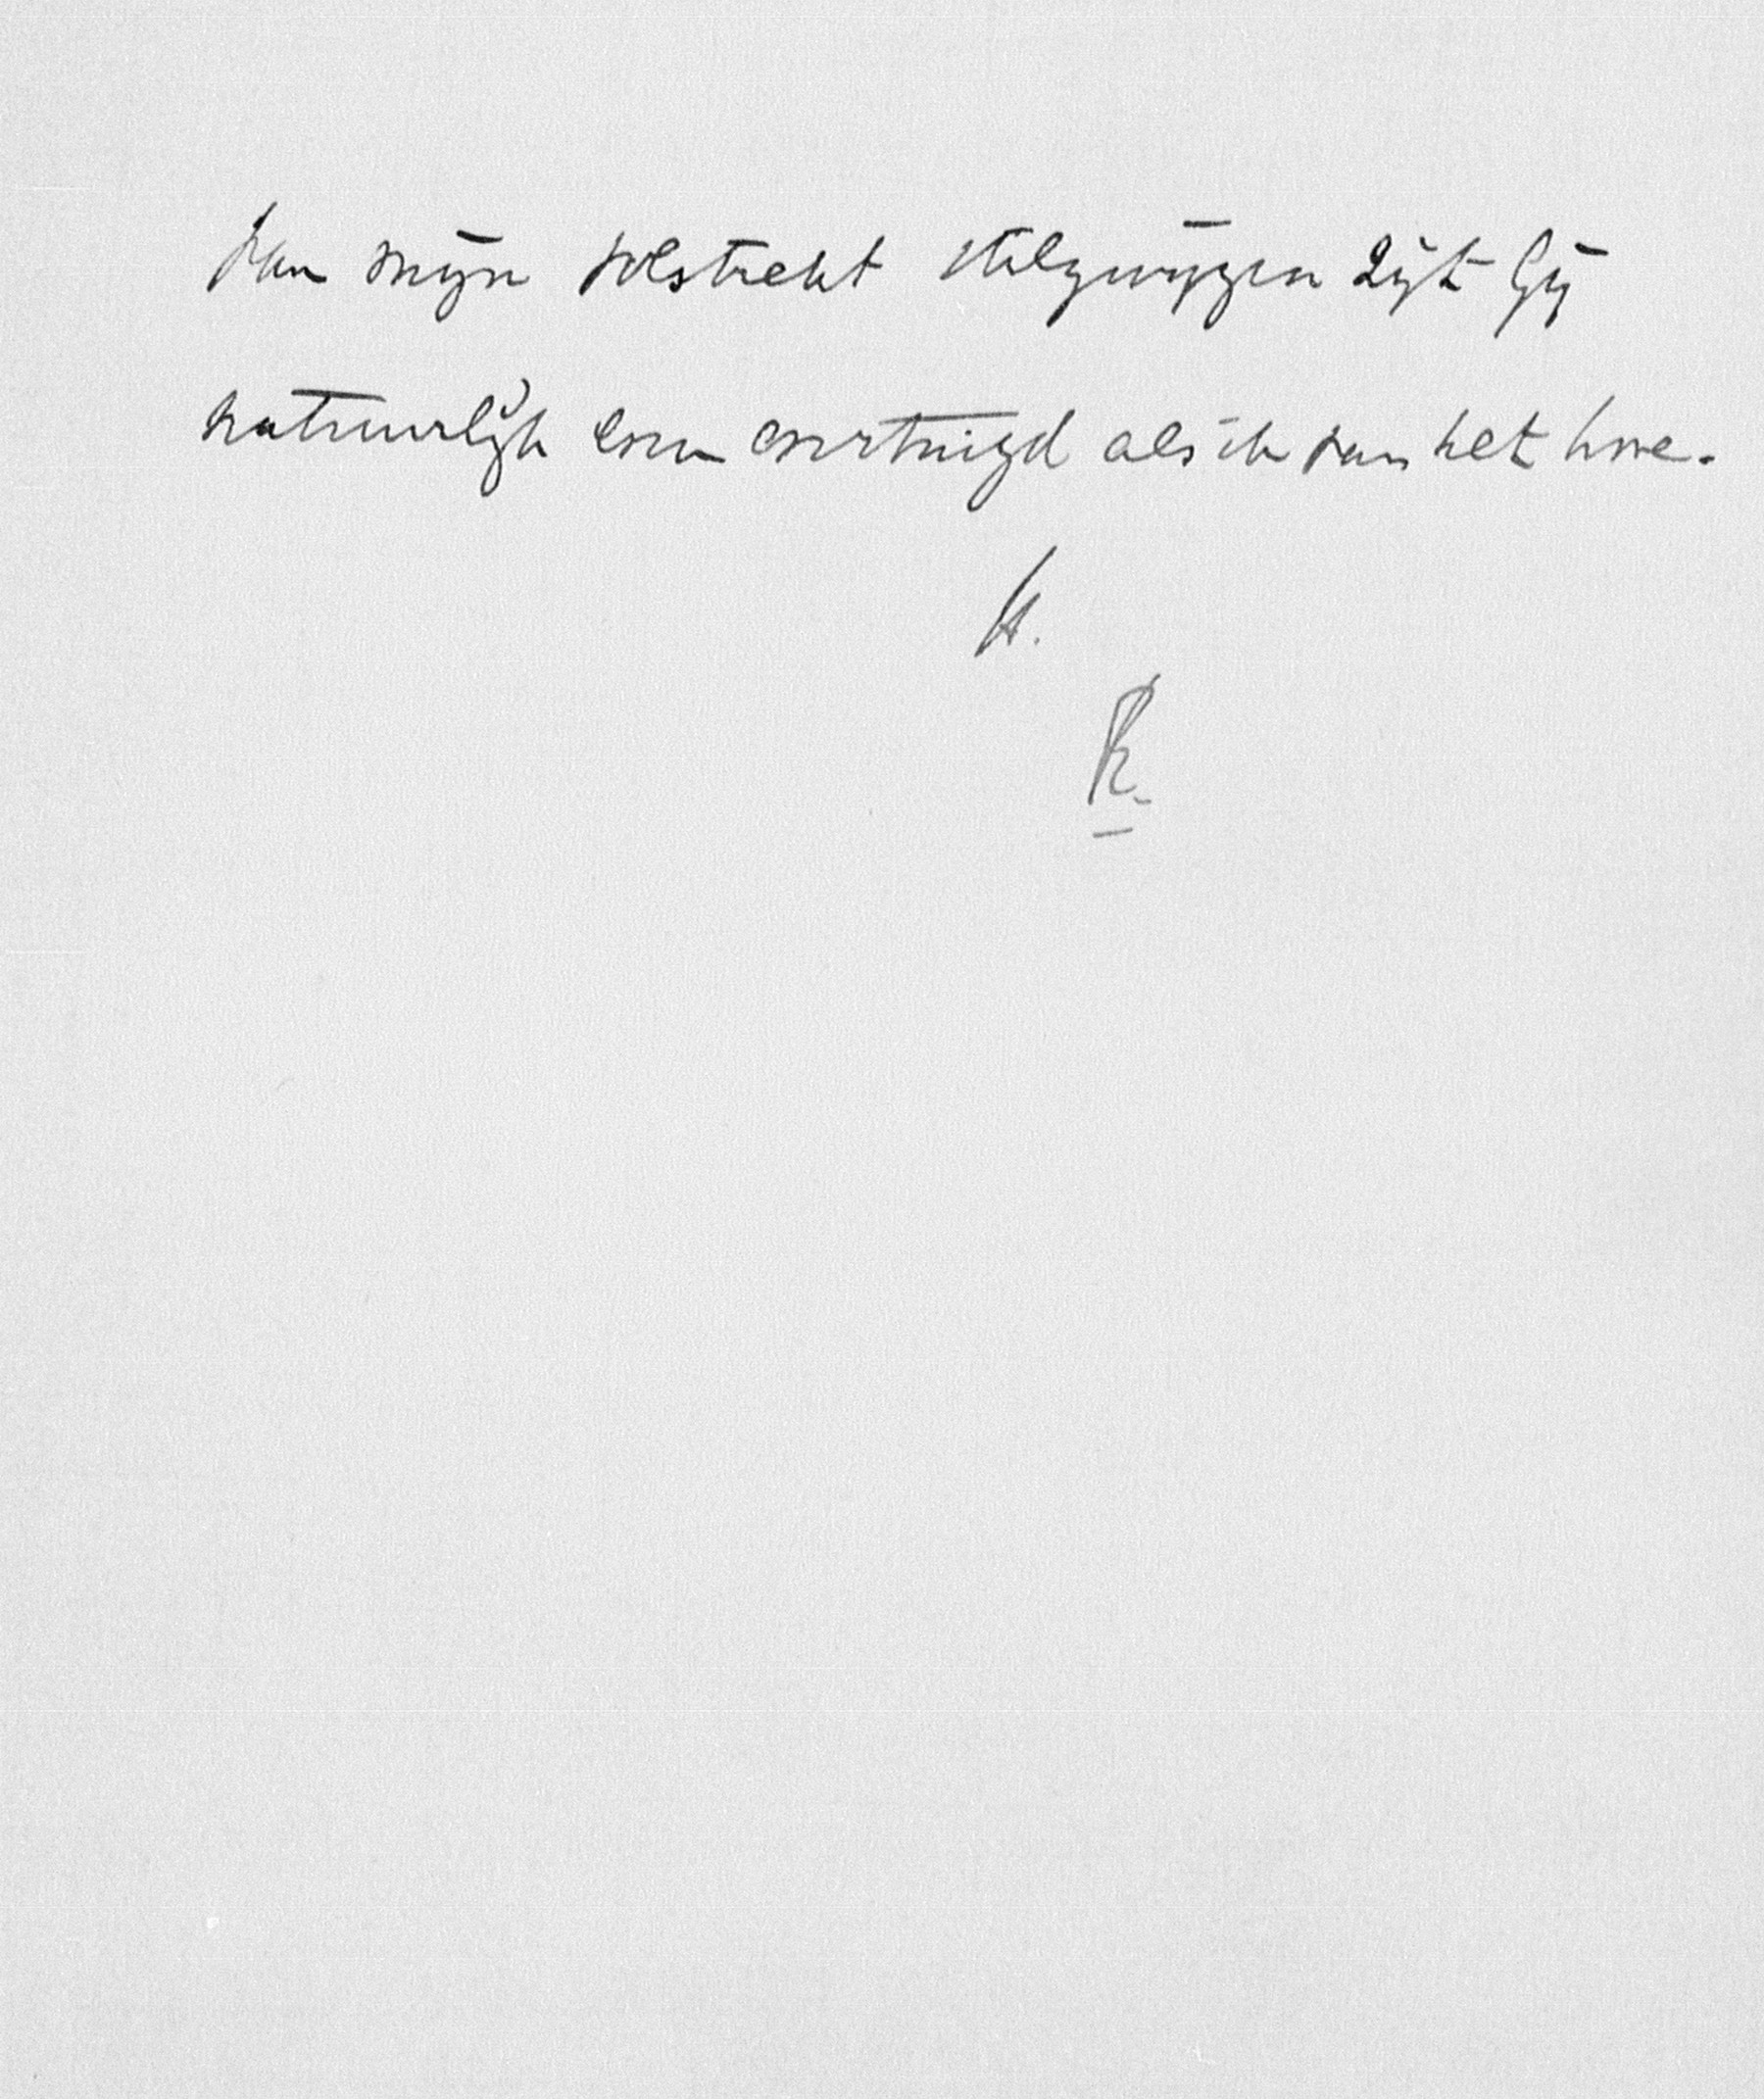 Van mijn volstrekt stilzwijgen zijt Gij
natuurlijk even overtuigd als ik van het Uwe.
t.
R.